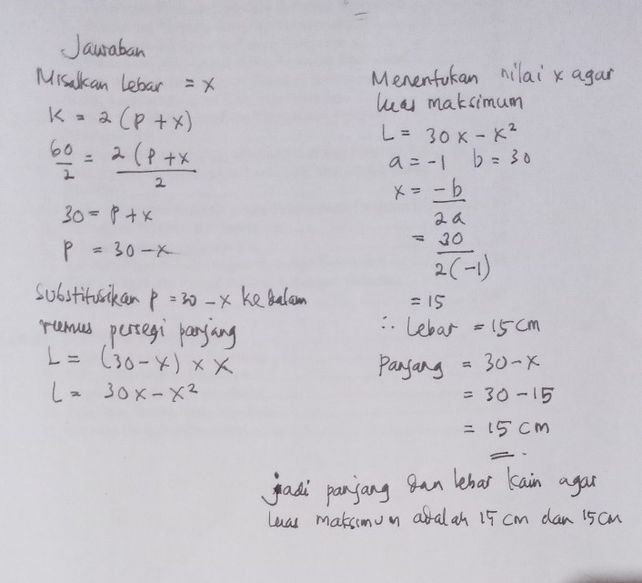 Jawaban
Misalkan Lebar = x
K = 2 (P + x)
60/2 = 2 (P + x/2
30 = P + x
P = 30 - x
Substitusikan P = 30 - x ke dalam
rumus persegi panjang
L = (30 - x) x x
L = 30x - x²
Menentukan nilai x agar
luas maksimum
L = 30x - x²
a = -1 b = 30
x = -b/2a
= 30/2(-1)
= 15
∴ Lebar = 15 cm
Panjang = 30 - x
= 30 - 15
= 15 cm
jadi panjang dan lebar kain agar
luas maksimum adalah 15 cm dan 15 cm